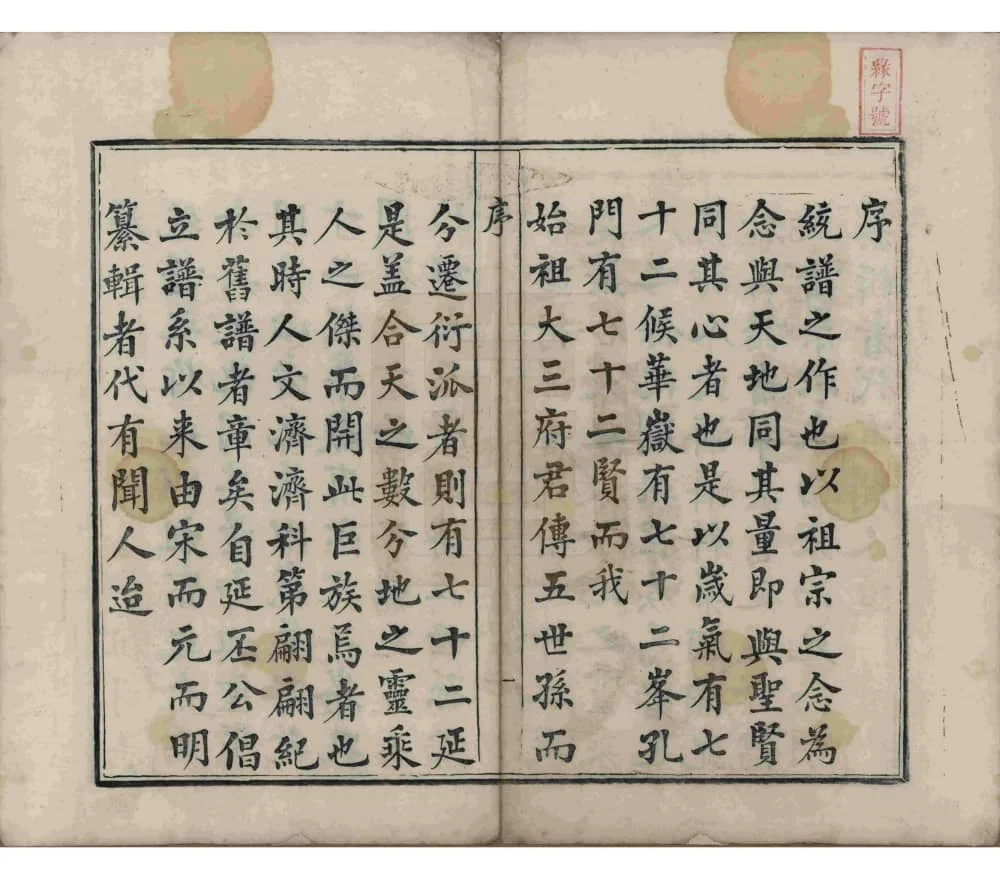 綵字號
序
統譜之作也以祖宗之念為
念與天地同其量即與聖賢
同其心者也是以歲氣有七
十二候華嶽有七十二峯孔
門有七十二賢而我
始祖大三府君傳五世孫而
序
一
分遷衍派者則有七十二延
是盖合天之數分地之靈乘
人之傑而開此巨族焉者也
其時人文濟濟科第翩翩紀
於舊譜者章矣自延丕公倡
立譜系以来由宋而元而明
纂輯者代有聞人迨